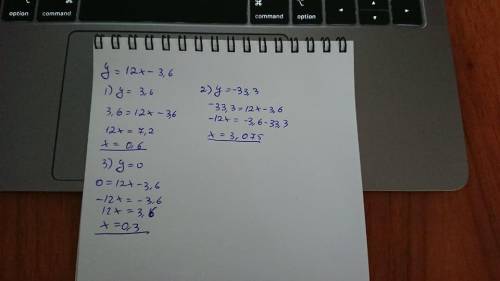 option
command
command
option
y = 12x - 3,6
1) y = 3,6
3,6 = 12x - 3,6
12x = 7,2
x = 0,6
2) y = -33,3
-33,3 = 12x - 3,6
-12x = -3,6 - 33,3
x = 3,075
3) y = 0
0 = 12x - 3,6
-12x = -3,6
12x = 3,6
x = 0,3